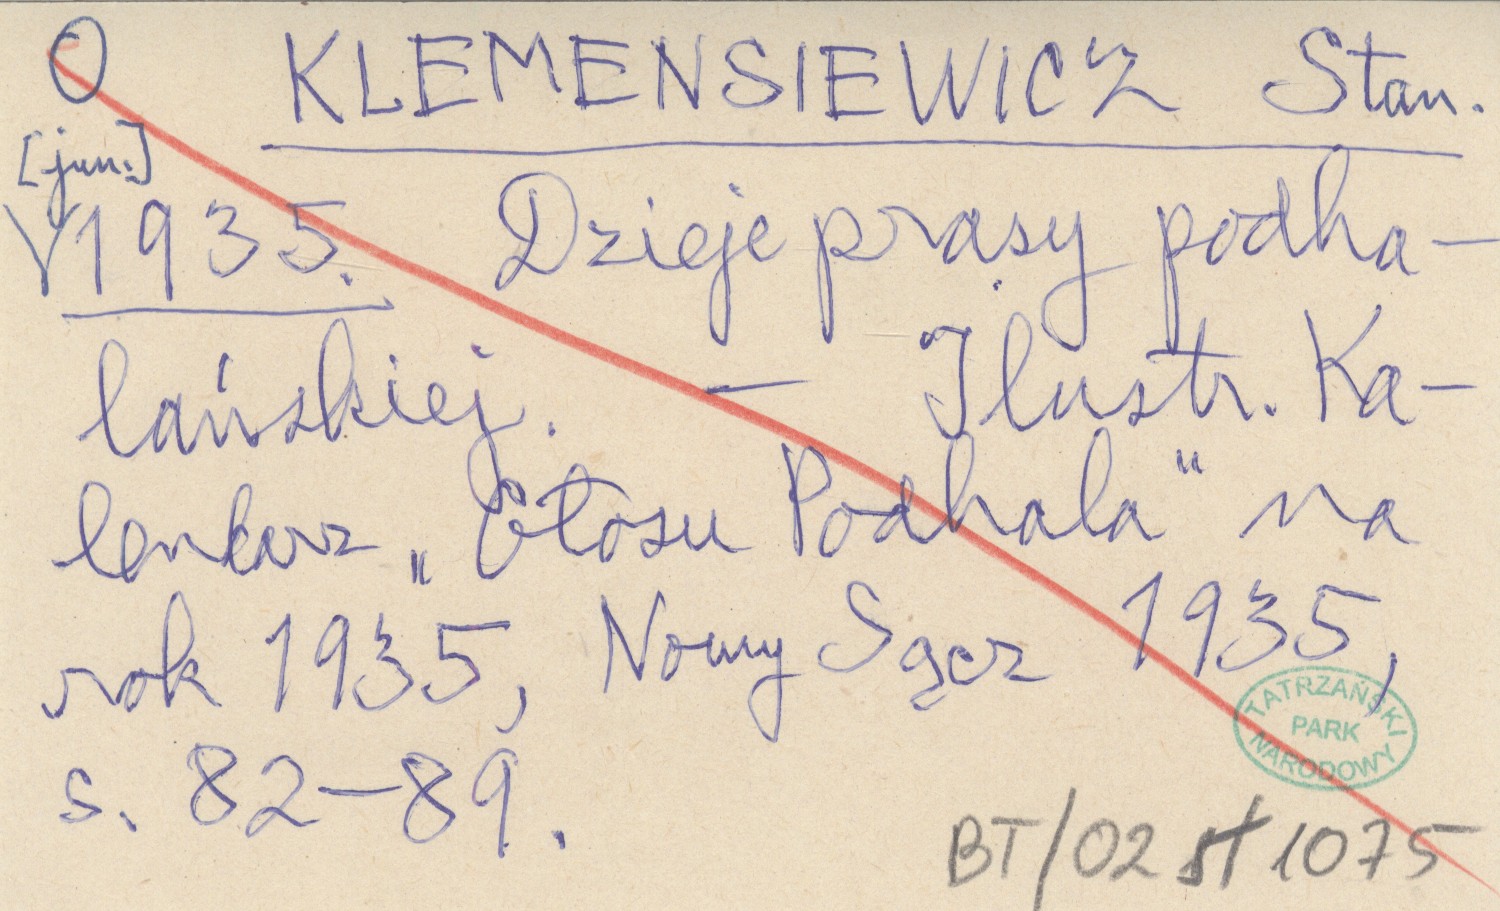 O KLEMENSIEWICZ Stan.
[jun.]
V1935. Dzieje prasy podha-
lańskiej. — Ilustr. Ka-
lendarz „Głosu Podhala" na
rok 1935, Nowy Sącz 1935,
s. 82-89.
TATRZAŃSKI
PARK
NARODOWY
BT/02 1075